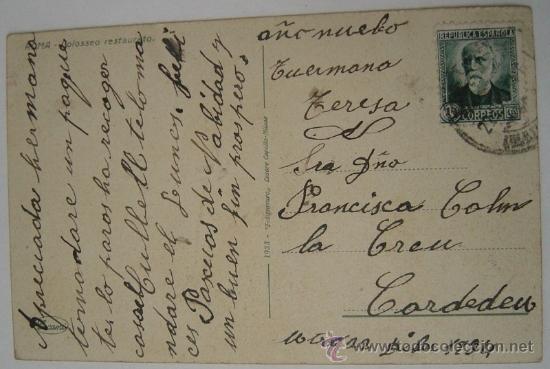 ROMA - Colosseo restaurato.
Apreciada hermana
te mandare un paque
te lo paros ha recoger
casa Cullell te lo ma
ndare el Lunes. feli
ces Pascuos de Nabidad y
un buen fin prospero.
año nuebo
tuermana
Teresa
Sra Dño
Francisca Colm
la Creu
Cardedeu
REPUBLICA ESPAÑOLA
CORREOS
todocoleccion